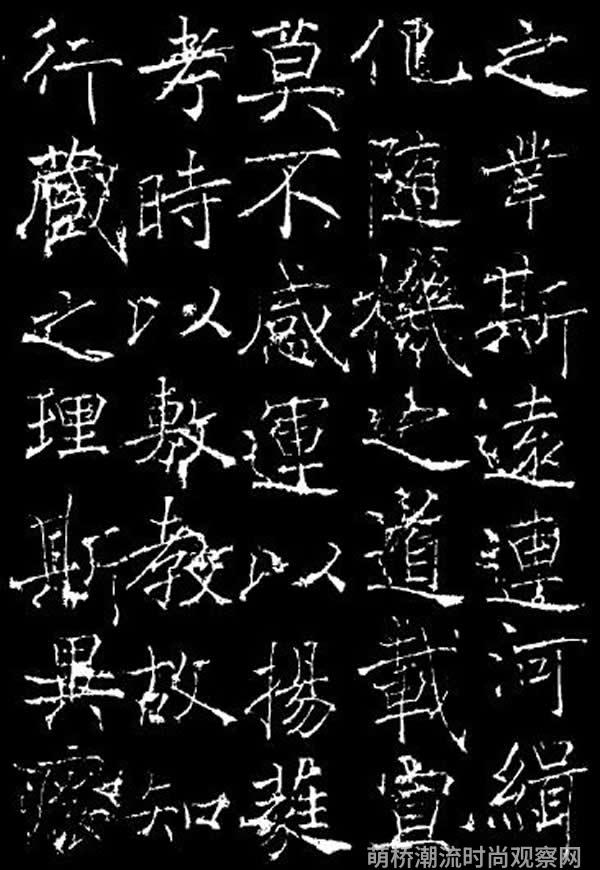 之業斯遠遵河緝
化隨機之道載宣
莫不感運以揚蕤
考時以敷教故知
行藏之理斯異
萌桥潮流时尚观察网